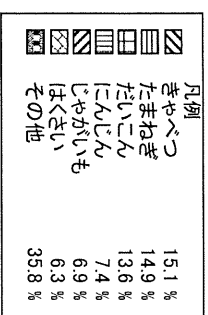 凡例
きゃべつ 15.1 %
たまねぎ 14.9 %
だいこん 13.6 %
にんじん 7.4 %
じゃがいも 6.9 %
はくさい 6.3 %
その他 35.8 %